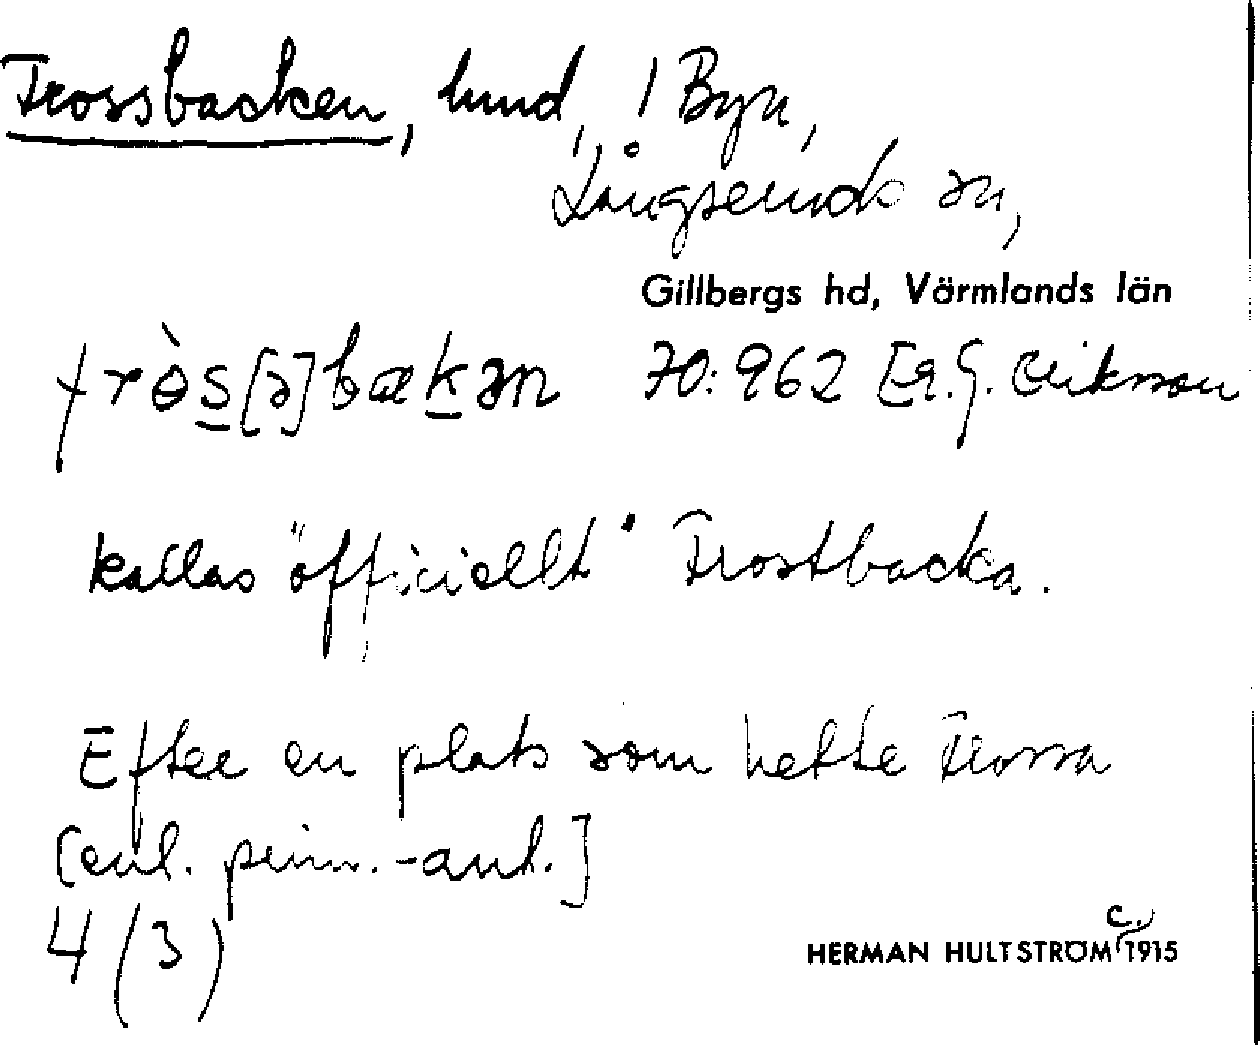 Trossbacken, lund, i Byn,
Långseruds sn,
Gillbergs hd, Värmlands län
trɵ̀s[ə]bakən 70:962 Er.G. Erikson
kallas "officiellt" Trostbacka.
Efter en plats som hette Trossa
[enl. prim.-ant.]
4 (3)
HERMAN HULTSTRÖM c. 1915